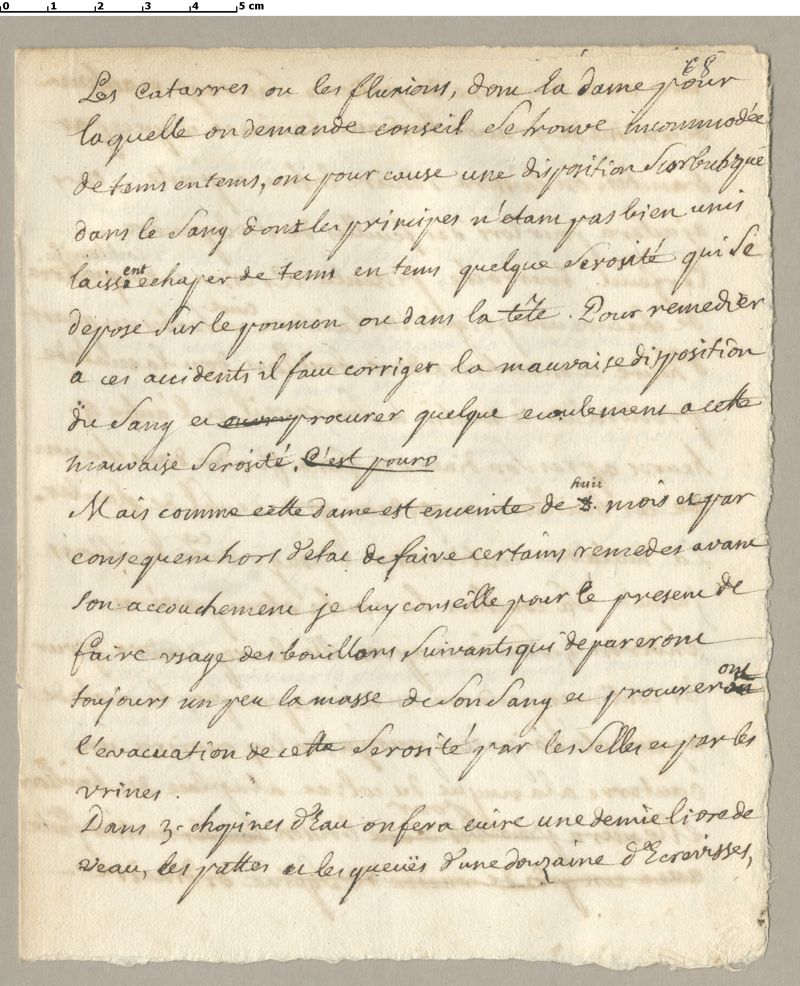 0 1 2 3 4 5 cm
68
Les Catarres ou les fluxions, dont la dame pour
laquelle on demande conseil se trouve incommodée
de tems en tems, ont pour cause une disposition scorbutique
dans le sang dont les principes n'etant pas bien unis
laissent echaper de tems en tems quelque serosité qui se
depose sur le poumon ou dans la tête. Pour remedier
a ces accidents il faut corriger la mauvaise disposition
du sang et procurer quelque ecoulement a cette
mauvaise serosité. C'est pourq
huit
Mais comme cette dame est enceinte de 8. mois et par
consequent hors d'etat de faire certains remedes avant
son accouchement je luy conseille pour le present de
faire vsage des bouillons suivants qui depureront
toujours un peu la masse de son sang et procureront
l'evacuation de cette serosité par les selles et par les
vrines.
Dans 3. chopines d'Eau on fera cuire une demie livre de
veau, les pattes et les queuës d'une douzaine d'Ecrevisses,